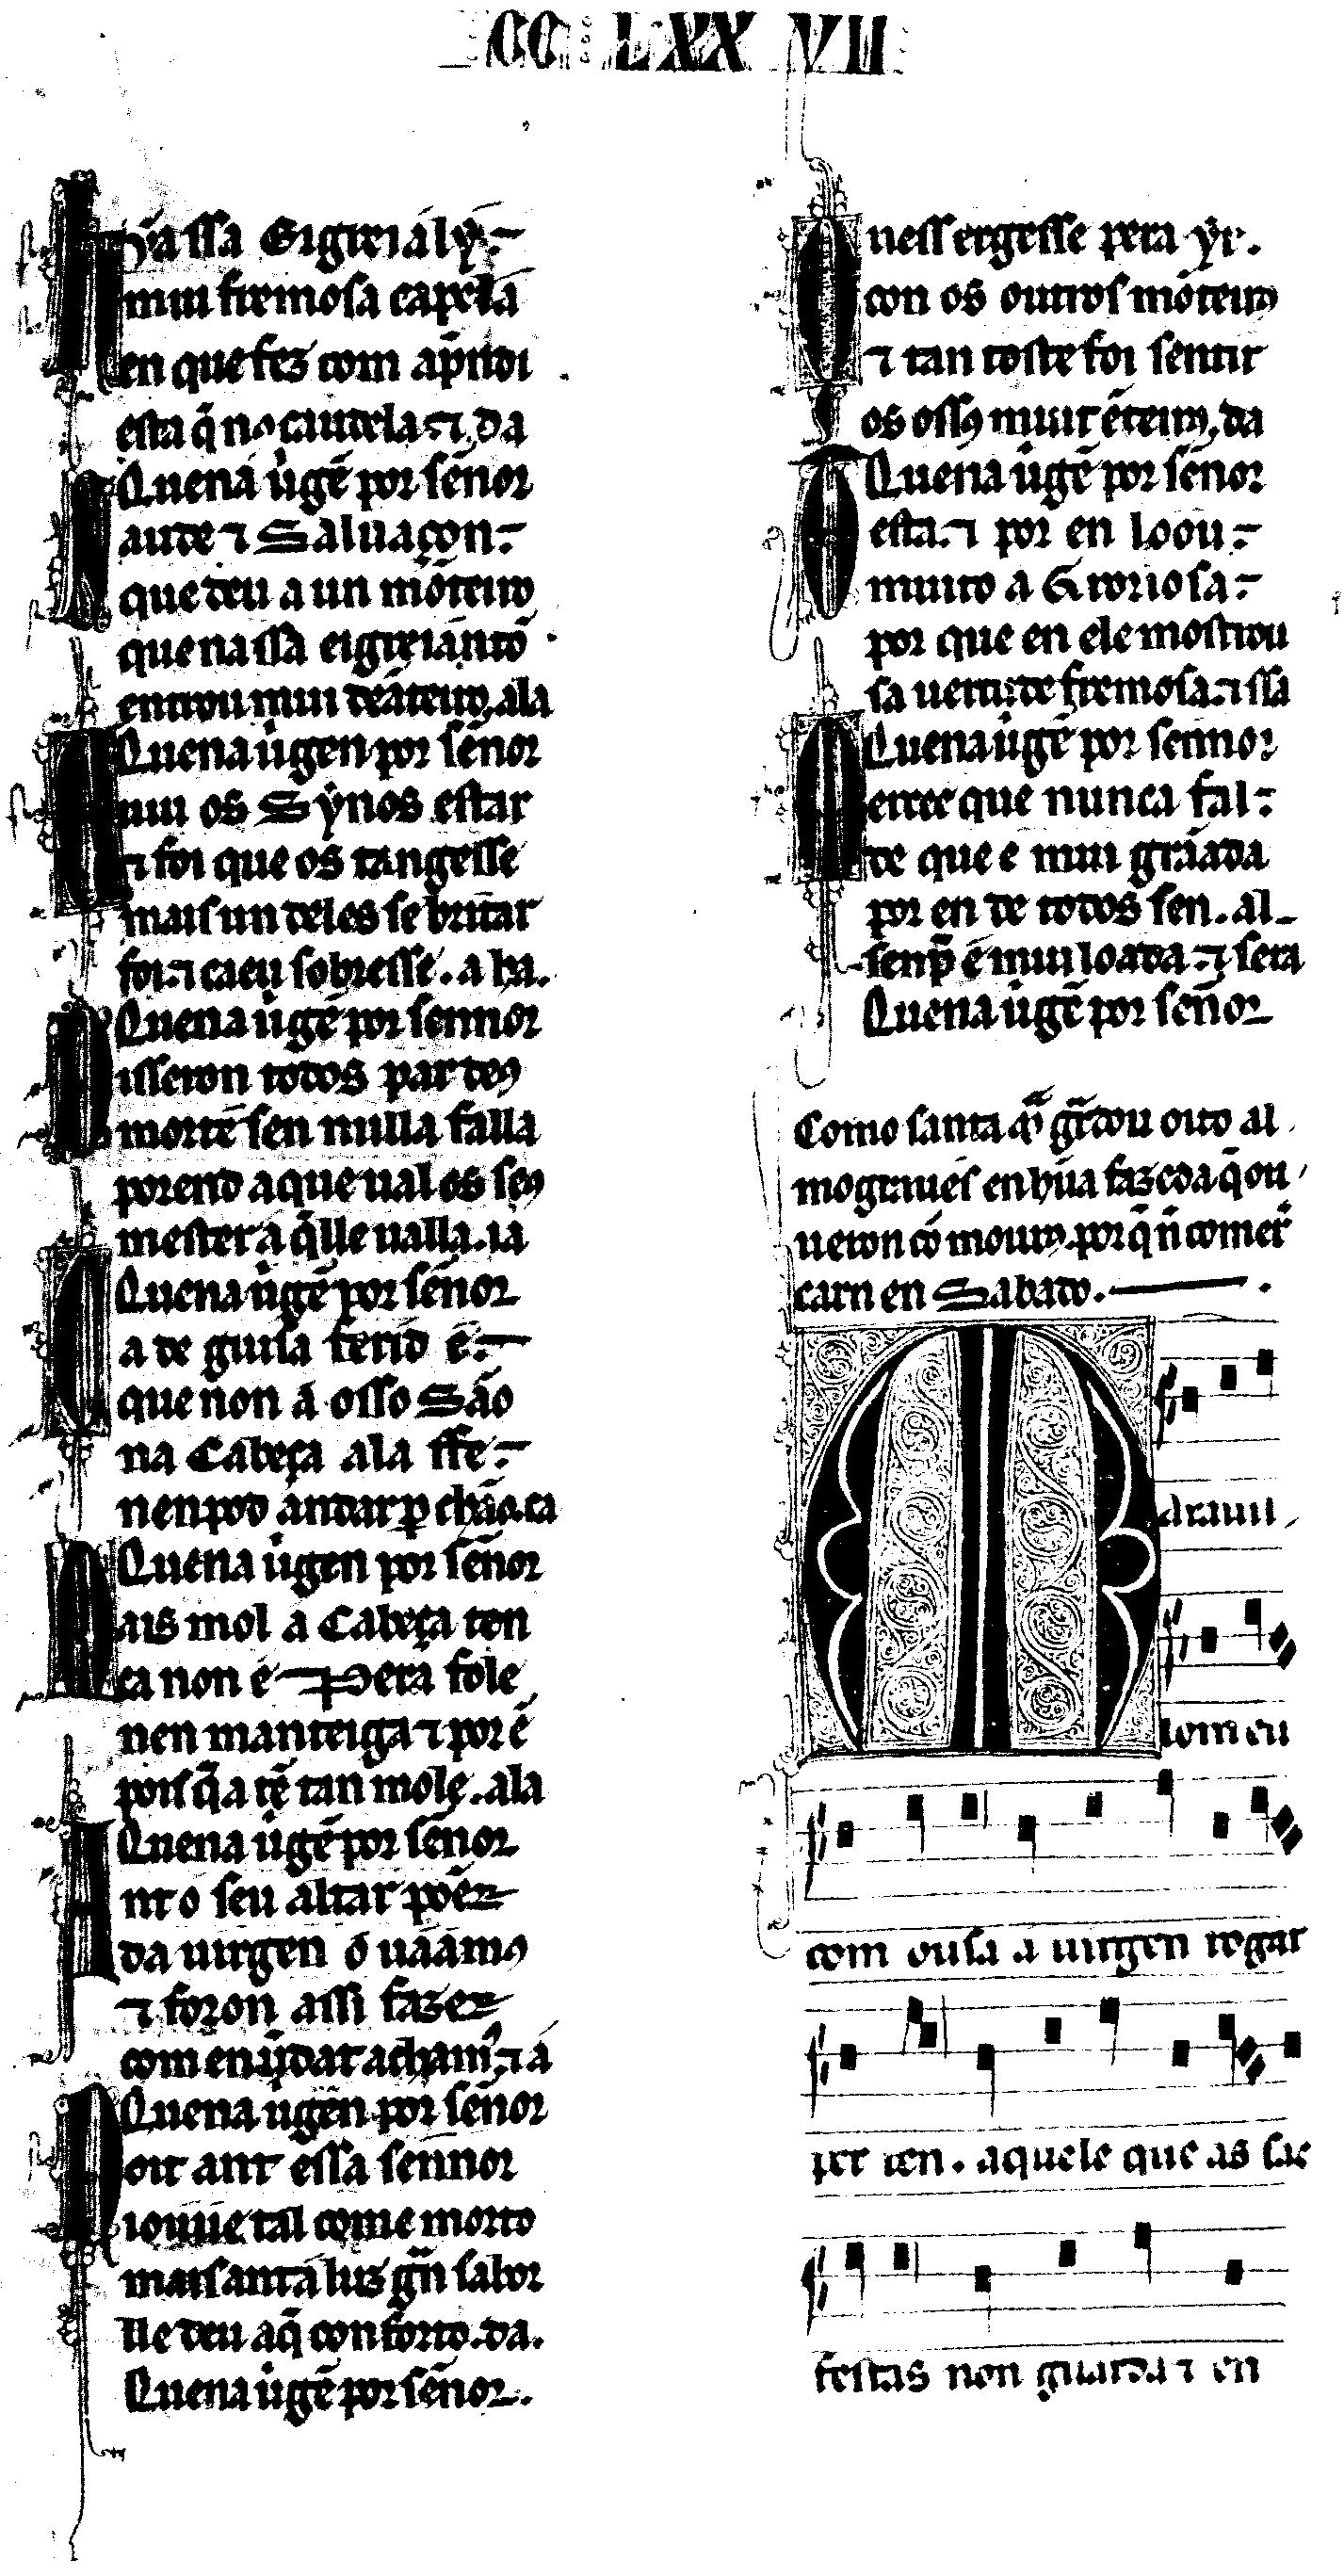 CC LXX VII
Ena ssa Eigreia ly
mui fremosa capela
en que fez com aprendi
esta q̄ nos caudela. ⁊ da
Quen a uirgē por sennor
Saude ⁊ Saluaçon
que deu a un mōteiro
que na ssa eigreia entō
entrou mui deāteiro. a la
Quen a uirgen por sen̄or
Oyu os Sỹnos estar
⁊ foi que os tangesse
mais un deles se britar
foi. ⁊ caeu sobr esse. a ba.
Quen a uirgē por sennor
Disseron todos par deus
mort ē sen nulla falla
porend a que ual os seus
mester á q̄ lle ualla. ia
Quen a uirgē por sen̄or
Ca de guisa ferid ē
que non á osso São
na Cabeça a la ffe
nen pod andar per chão. ca
Quen a uirgen por sen̄or
Mais mol a Cabeça ten
ca non é Pera fole
nen manteiga ⁊ por ē
pois q̄ a tē tan mole. a la
Quen a uirgē por sen̄or
Ant o seu altar pōer
da uirgen o uaamos
⁊ foron assi fazer
com en uerdad achamos. ⁊ á
Quen a uirgen por sen̄or
Poit ant essa sennor
iouue tal come morto
mais ant a luz grā sabor
lle deu a q̄ conforto. da.
Quen a uirgē por sen̄or.
Que ss ergesse pera yr.
con os outros mōteiros
⁊ tan toste foi sentir
os ossos muit ēteiros. da
Quen a uirgē por sen̄or
Esta. ⁊ por en loou
muito a Groriosa
por que en ele mostrou
sa uertude fremosa. ⁊ ssa
Quen a uirgē por sennor
Mercee que nunca fal
de que é mui grāada
por en de todos sen. al
senpr̄ é mui loada. ⁊ sera
Quen a uirgē por sen̄or
Como santa M̄ gr̄dou oito al
mograues en hũa fazēda q̄ ou
ueron cō mouros. por q̄ ñ comer̄
carn en Sabado.
Marauil
lom eu
com ousa a uirgen rogar
per ren. aquele que as sas
festas non guarda ⁊ en